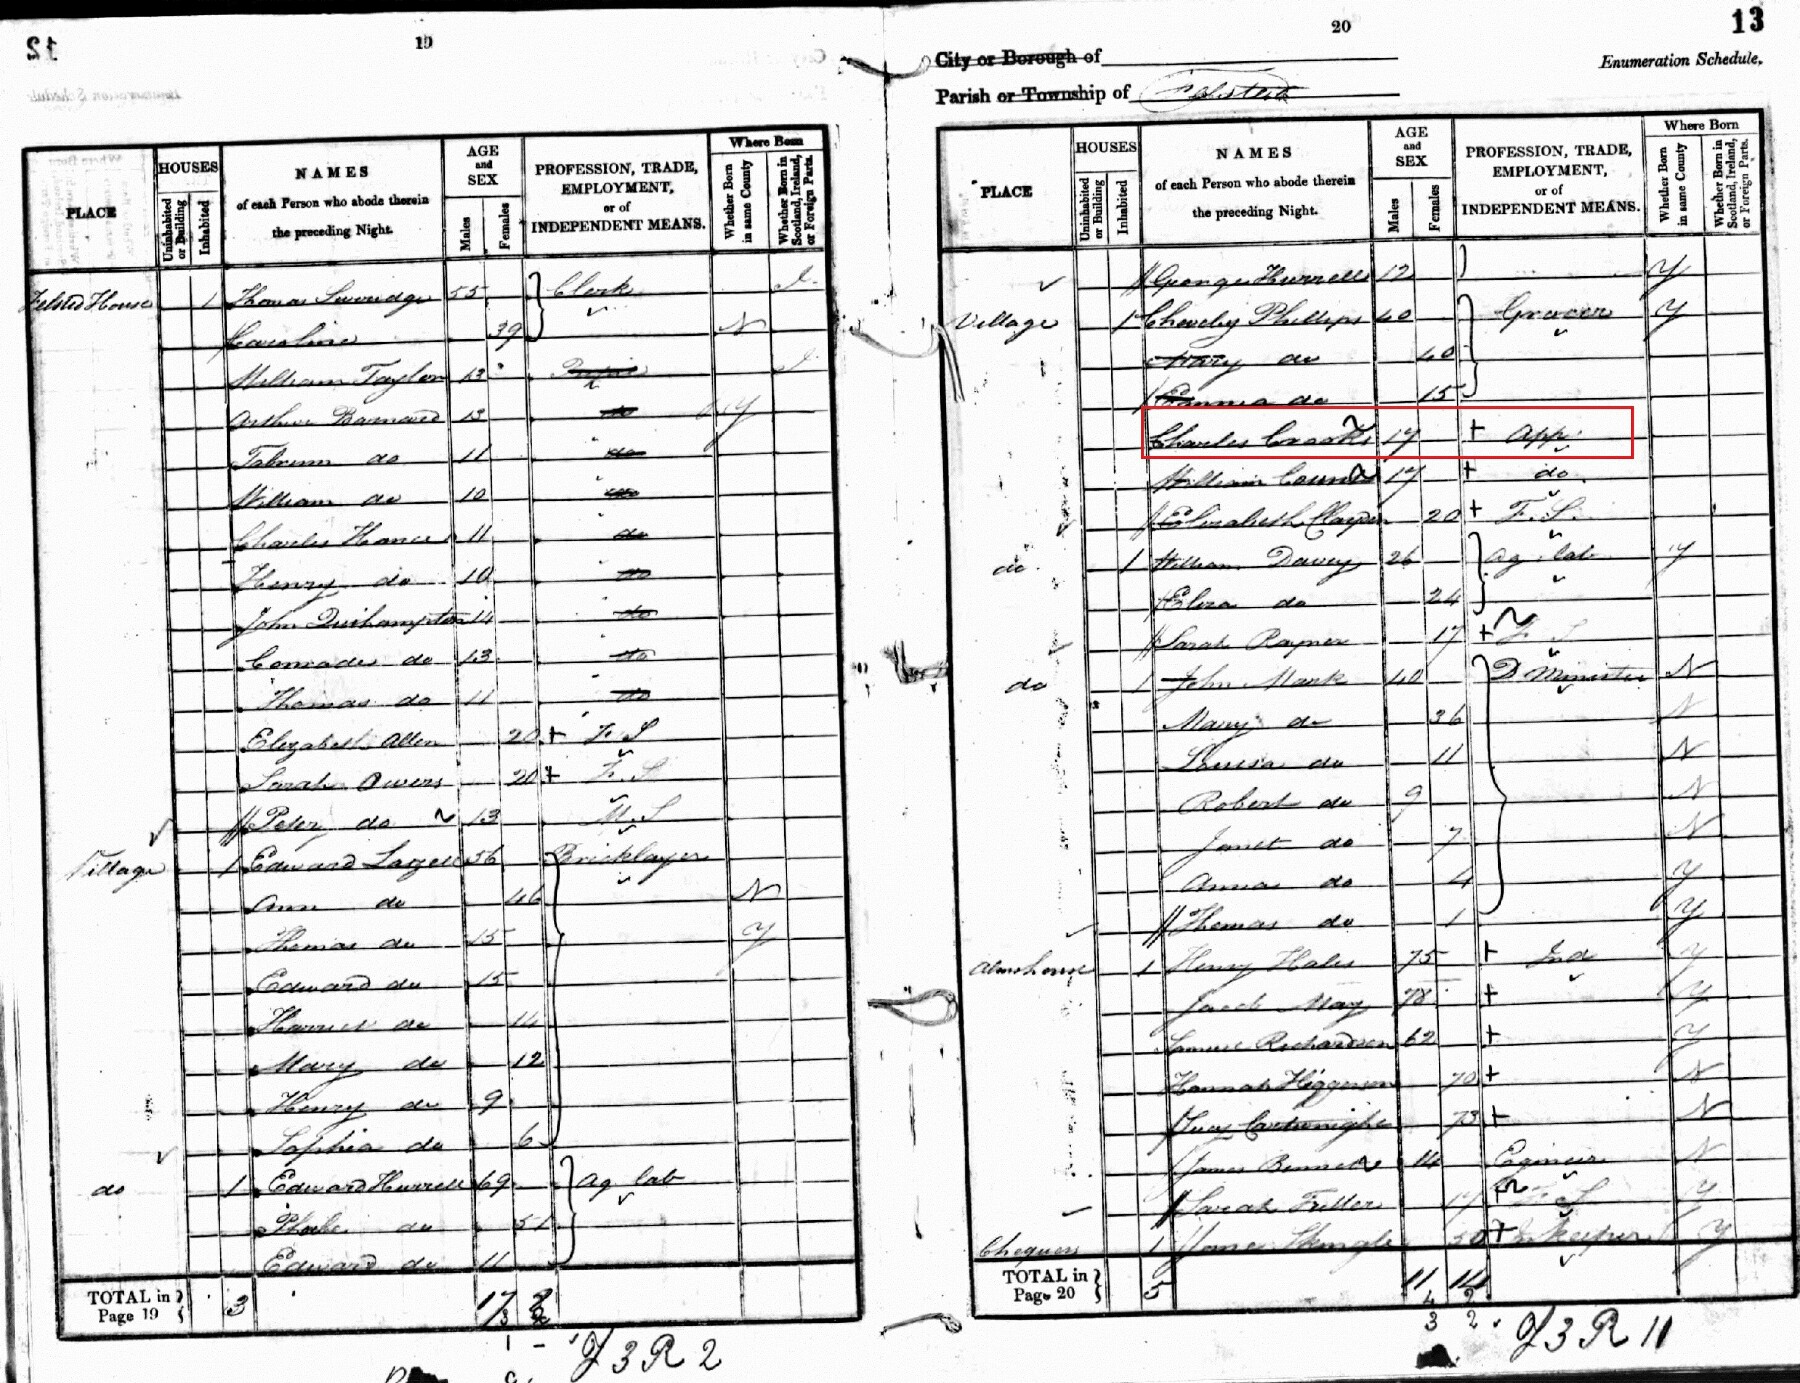 12
19
HOUSES
NAMES
AGE
and
SEX
PROFESSION, TRADE,
EMPLOYMENT,
or of
INDEPENDENT MEANS.
Where Born
PLACE
Uninhabited
or Building
Inhabited
of each Person who abode therein
the preceding Night.
Males
Females
Whether Born
in same County
Whether Born in
Scotland, Ireland,
or Foreign Parts.
Felsted House 1 Thomas 55 Clerk
Caroline 39 N
William Taylor 13
Arthur Barnard 13 do Y
do 11 do
William do 10 do
Charles Hance 11 do
Henry do 10 do
John Quihampton 14 do
do 13 do
Thomas do 11 do
Elizabeth Allen 20 + F. S
Sarah Owers 20 + F. S
// Peter do 13 M. S
Village 1 Edward 56 Bricklayer
Ann do 46 N
Thomas do 15 Y
Edward do 15
Harriet do 14
Mary do 12
Henry do 9
Sophia do 6
do 1 Edward Hurrell 69 Ag lab
Phoebe do 51
Edward do 11
TOTAL in
Page 19
3 17
3
1 -
3 R 2
20
13
City or Borough of
Enumeration Schedule.
Parish or Township of Felsted
PLACE
HOUSES
Uninhabited
or Building
Inhabited
NAMES
of each Person who abode therein
the preceding Night.
AGE
and
SEX
Males
Females
PROFESSION, TRADE,
EMPLOYMENT,
or of
INDEPENDENT MEANS.
Where Born
Whether Born
in same County
Whether Born in
Scotland, Ireland,
or Foreign Parts.
// George Hurrell 12 Y
Village 1 Phillips 40 Grocer Y
Mary do 40
/ Emma do 15
Charles 17 + App
William 17 + do
/ Elizabeth 20 + F. S.
do 1 William Davey 26 Ag lab Y
/ Eliza do 24
// Sarah Rayner 17 + F S
do 1 John Mark 40 D Minister N
Mary do 36 N
Louisa do 11 N
Robert do 9 N
Janet do 7 N
Anna do 4 Y
// Thomas do 1 Y
Almshouse 1 Henry Hales 75 + Ind Y
Jacob May 78 + Y
Samuel Richardson 62 + Y
Hannah 70 + N
/ Lucy Cartwright 73 + N
/ James Bennett 14 N
// Sarah Fuller 17 + F. S Y
Chequers 1 50 + Y
TOTAL in
Page 20
5 11 14
4 2
3 2
3 R 11